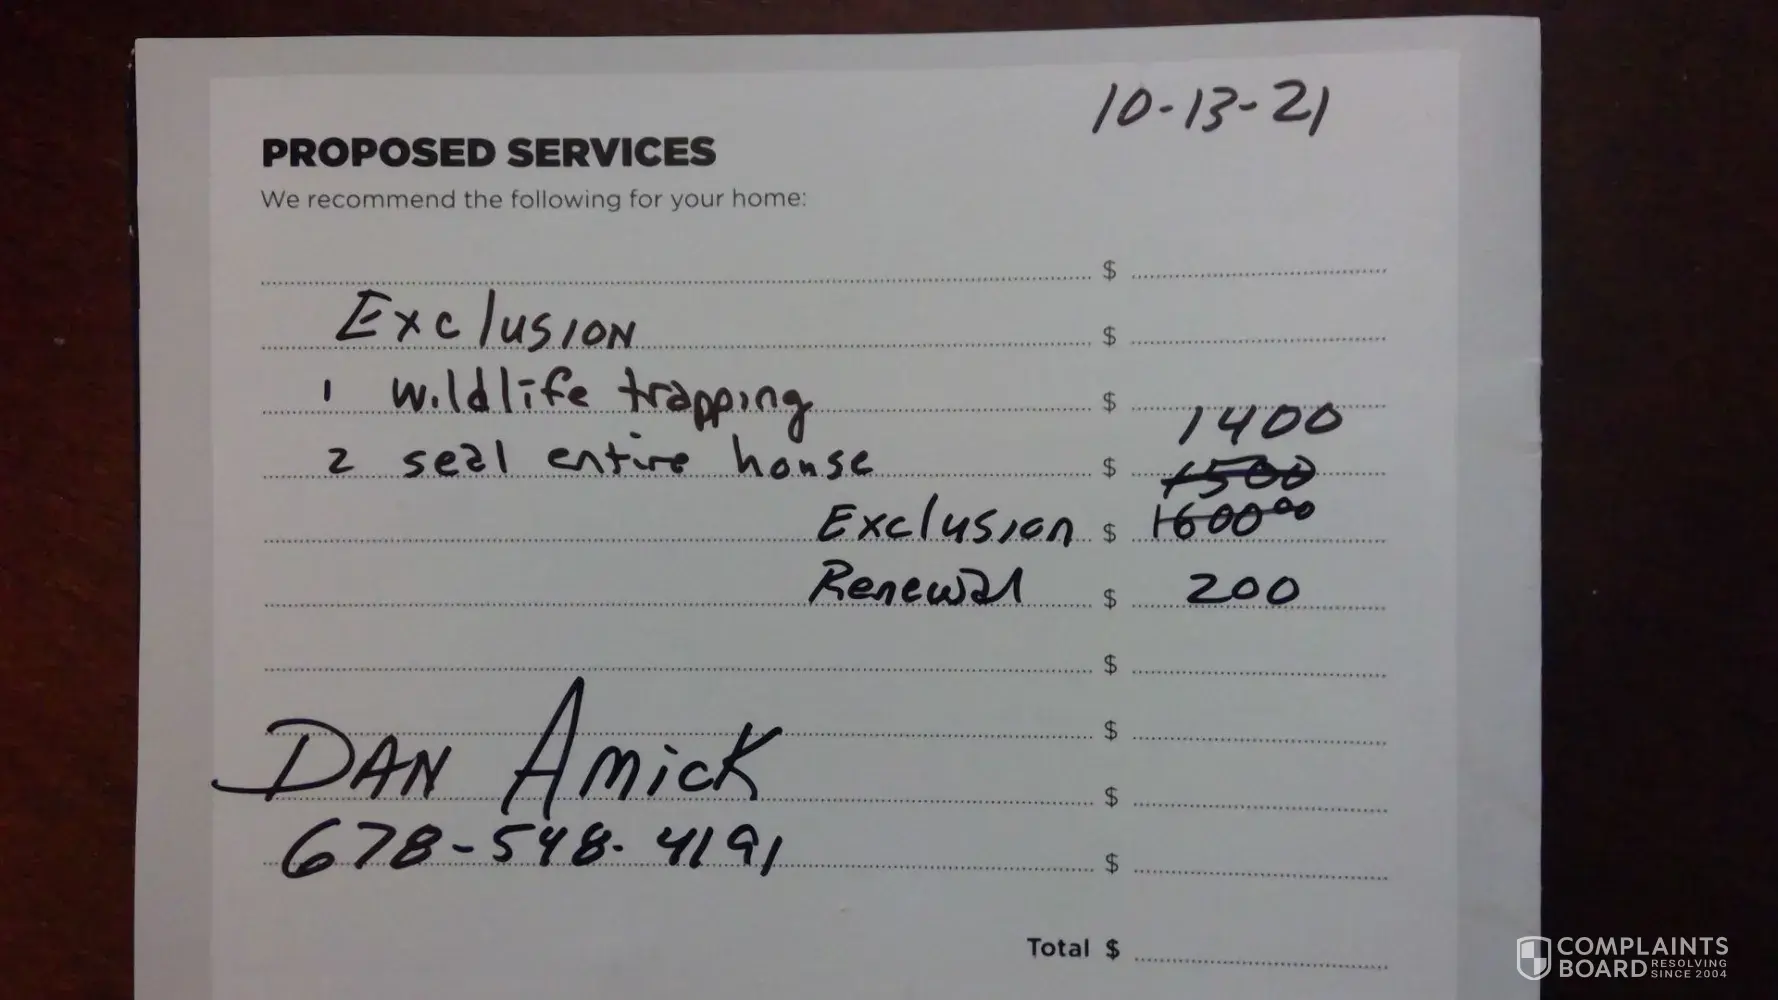 10-13-21
PROPOSED SERVICES
We recommend the following for your home:
$
Exclusion $
1 wildlife trapping $
1400
2 seal entire house $ 1500
Exclusion $ 1600.00
Renewal $ 200
$
$
DAN Amick $
678-548-4191 $
Total $
COMPLAINTS
BOARD RESOLVING
SINCE 2004